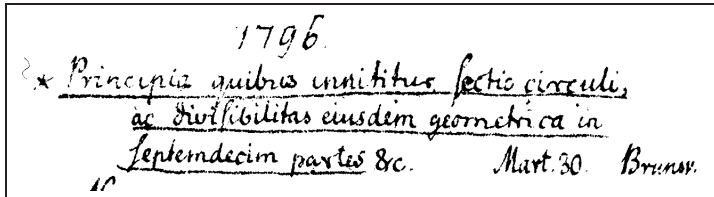 1796.
* Principia quibus innititur sectio circuli,
ac divisibilitas eiusdem geometrica in
septemdecim partes &c. Mart. 30. Brunsv.